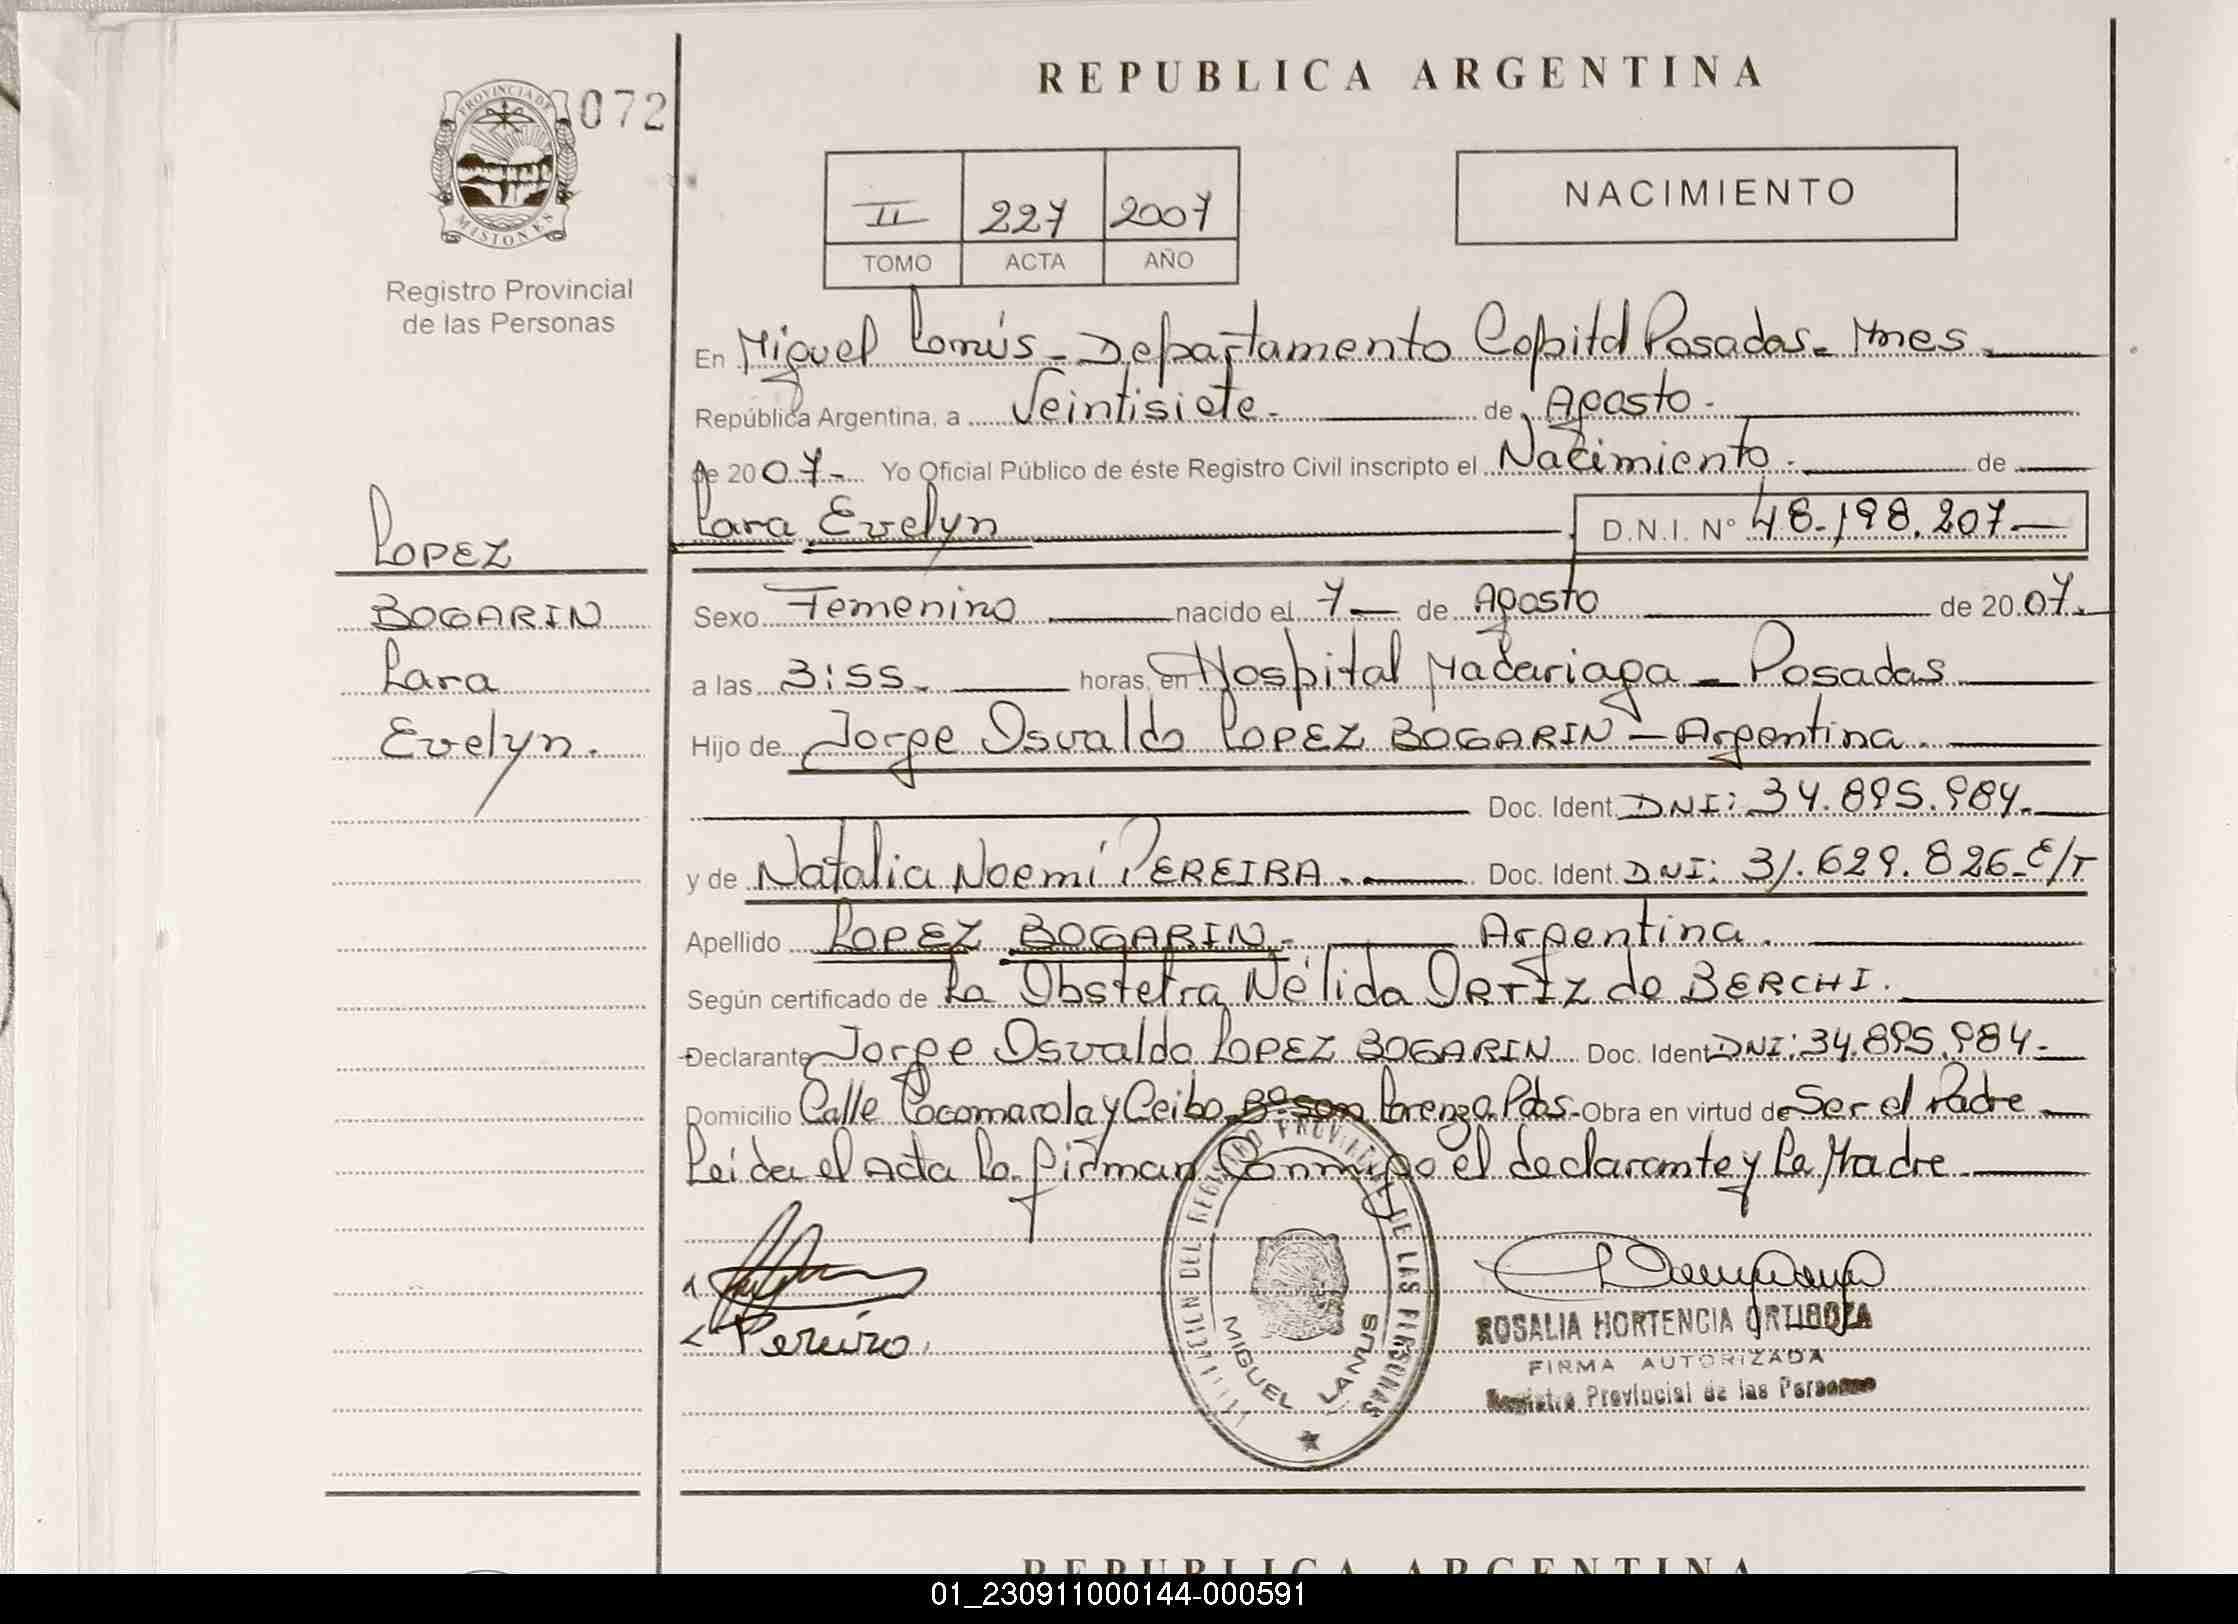 REPUBLICA ARGENTINA
PROVINCIA DE
MISIONES
072
Registro Provincial
de las Personas
II 227 2007
TOMO ACTA AÑO
NACIMIENTO
En Miguel Lanús - Departamento Capital Posadas - Mnes.
República Argentina, a Veintisiete - de Agosto -
de 2007 - Yo Oficial Público de éste Registro Civil inscripto el Nacimiento - de
Lara Evelyn D.N.I. N° 48.198.207
LOPEZ
BOGARIN
Lara
Evelyn.
Sexo Femenino nacido el 7 de Agosto de 2007.
a las 3:55 horas, en Hospital Madariaga - Posadas
Hijo de Jorge Osvaldo LOPEZ BOGARIN - Argentina.
Doc. Ident. DNI: 34.895.984.
y de Natalia Noemí PEREIRA. Doc. Ident. DNI: 31.629.826 - E/T
Apellido LOPEZ BOGARIN - Argentina.
Según certificado de La Obstetra Nélida ORTIZ de BERCHI.
Declarante Jorge Osvaldo LOPEZ BOGARIN Doc. Ident DNI: 34.895.984 -
Domicilio Calle Cocomarola y Ceibo Bº San Lorenzo Pdas. Obra en virtud de Ser el Padre
Leida el Acta La firman Conmigo el declarante y La Madre
Pereira
REGISTRO PROVINCIAL DE LAS PERSONAS
MIGUEL LANUS
ROSALIA HORTENCIA ORTIGOZA
FIRMA AUTORIZADA
Registro Provincial de las Personas
REPUBLICA ARGENTINA
01_230911000144-000591